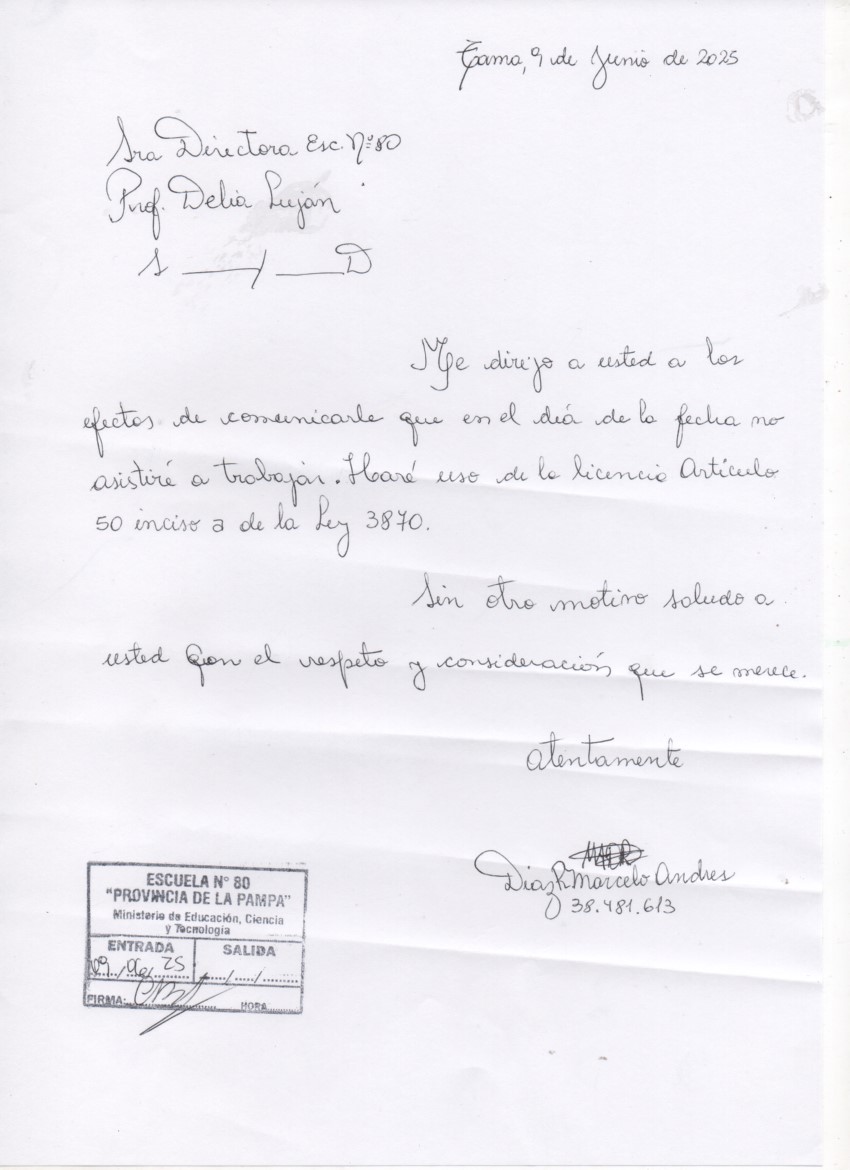 Tama, 9 de Junio de 2025
Sra Directora Esc. Nº 80
Prof. Delia Luján
S ____/____D
Me dirijo a usted a los
efectos de comunicarle que en el diá de la fecha no
asistiré a trabajar. Haré uso de la licencia Artículo
50 inciso a de la Ley 3870.
Sin otro motivo saludo a
usted con el respeto y consideración que se merece.
Atentamente
Diaz R. Marcelo Andres
38.481.613
ESCUELA N° 80
"PROVINCIA DE LA PAMPA"
Ministerio de Educación, Ciencia
y Tecnología
ENTRADA SALIDA
09/06/25 ..../..../........
FIRMA: HORA